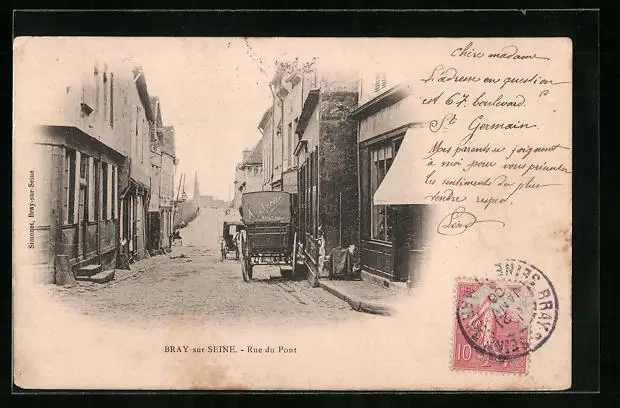 Chère madame
L'adresse en question
est 67. boulevard.
St Germain.
Mes parents se joignent
à moi pour vous présenter
les sentiments du plus
tendre respect.
Simonet, Bray-sur-Seine
BRAY-sur-SEINE. - Rue du Pont
10
BRAY-SUR-SEINE